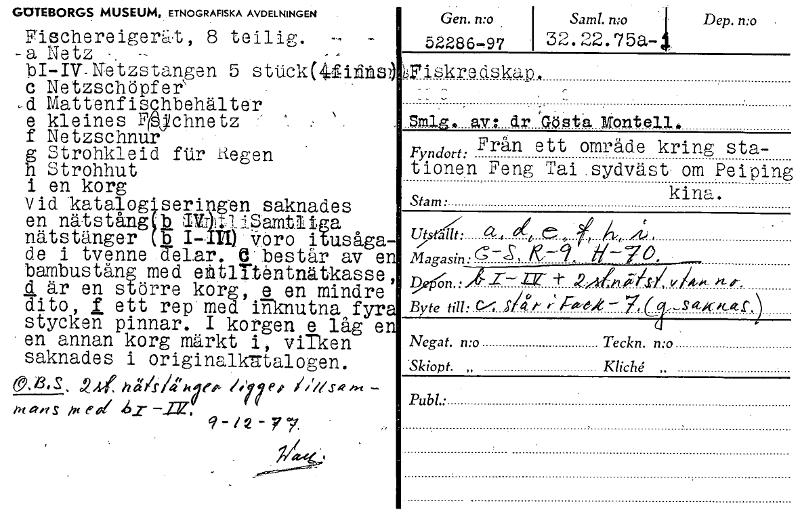 GÖTEBORGS MUSEUM, ETNOGRAFISKA AVDELNINGEN
Fischereigerät, 8 teilig.
a Netz
bI-IV Netzstangen 5 stück(4finns)
c Netzschöpfer
d Mattenfischbehälter
e kleines Fischnetz
f Netzschnur
g Strohkleid für Regen
h Strohhut
i en korg
Vid katalogiseringen saknades
en nätstång(b IV). Samtliga
nätstänger (b I-III) voro itusåga-
de i tvenne delar. c består av en
bambustång med entlitentnätkasse,
d är en större korg, e en mindre
dito, f ett rep med inknutna fyra
stycken pinnar. I korgen e låg en
en annan korg märkt i, vilken
saknades i originalkatalogen.
O.B.S. 2 st. nätstänger ligger tillsam-
mans med b I-IV.
9-12-77
Gen. n:o
52286-97
Saml. n:o
32.22.75a-i
Dep. n:o
Fiskredskap.
Smlg. av: dr Gösta Montell.
Fyndort: Från ett område kring sta-
tionen Feng Tai sydväst om Peiping
kina.
Stam:
Utställt: a, d, e, f, h, i.
Magasin: C-S. R-9. H-70.
Depon.: b I-IV + 2 st. nätst. utan no.
Byte till: c. står i Fack-7. (g. saknas.)
Negat. n:o Teckn. n:o
Skiopt. „ Kliché „
Publ.: